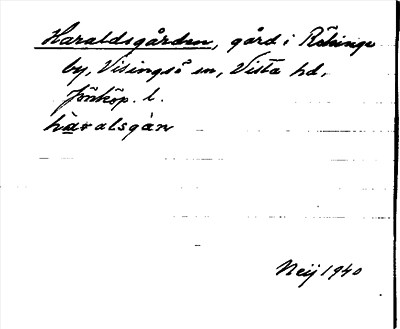 Haraldsgården, gård i Rökinge
by, Visingsö sn, Vista hd,
Jönköp. l.
hàralsgàṛn
Neij 1940